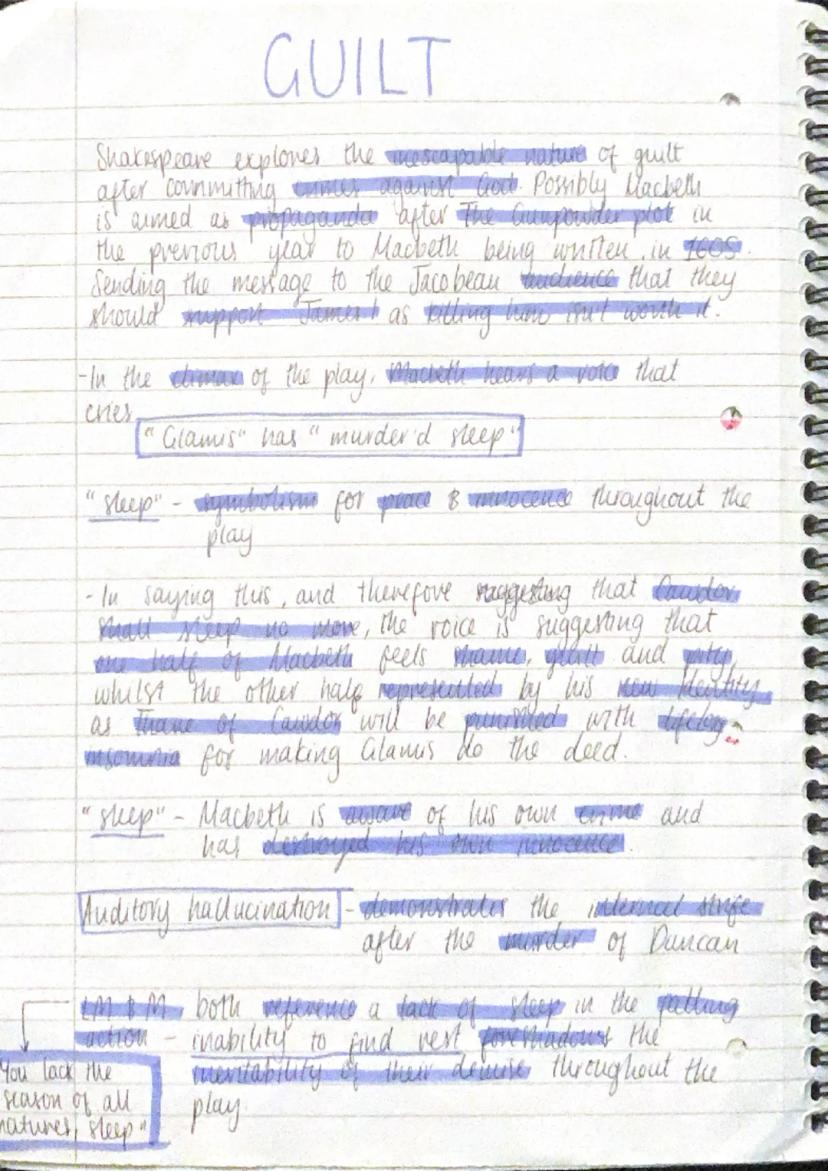 GUILT
Shakespeare explores the inescapable nature of guilt
after committing crimes against God. Possibly Macbeth
is aimed as propaganda after The Gunpowder plot in
the previous year to Macbeth being written in 1605.
Sending the message to the Jacobean audience that they
should support James I as killing him isn't worth it.
-In the climax of the play, Macbeth hears a voice that
cries
"Glamis" has "murder'd sleep"
"sleep" - symbolism for peace & innocence throughout the
play
-In saying this, and therefore suggesting that Cawdor
shall sleep no more, the voice is suggesting that
one half of Macbeth feels shame, guilt and pity,
whilst the other half represented by his new identity
as Thane of Cawdor will be punished with lifelong
insomnia for making Glamis do the deed.
"sleep" - Macbeth is aware of his own crime and
has destroyed his own innocence.
Auditory hallucination - demonstrates the internal strife
after the murder of Duncan
LM & M both reference a lack of sleep in the falling
action - inability to find rest foreshadows the
inevitability of their demise throughout the
play.
"You lack the
season of all
natures, sleep"